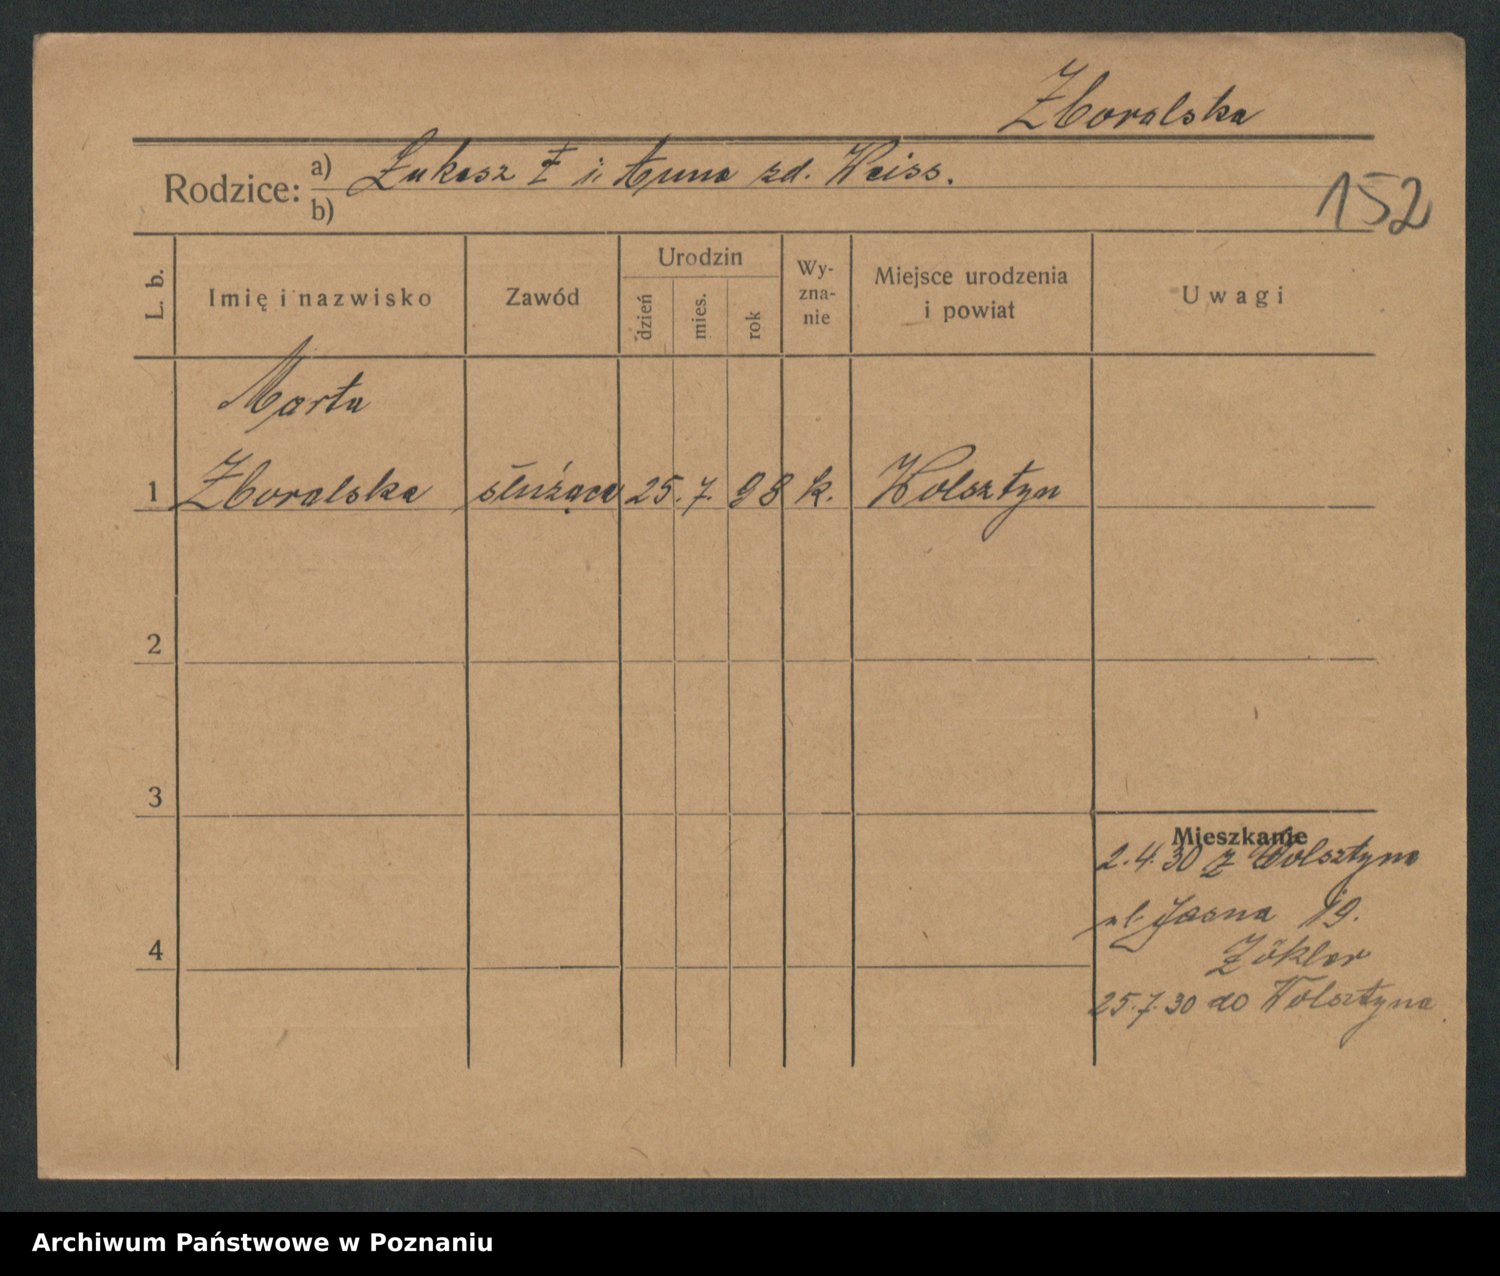 Zboralska
Rodzice: a) Łukasz Z i Anna zd. Weiss.
b)
152
L. b.
Imię i nazwisko
Zawód
Urodzin
dzień
mies.
rok
Wy-
zna-
nie
Miejsce urodzenia
i powiat
Uwagi
Marta
1 Zboralska służąca 25. 7. 98 k. Wolsztyn
2
3
4
Mieszkanie
2.4.30 z Wolsztyna
ul. Jasna 19.
Zökler
25.7.30 do Wolsztyna
Archiwum Państwowe w Poznaniu